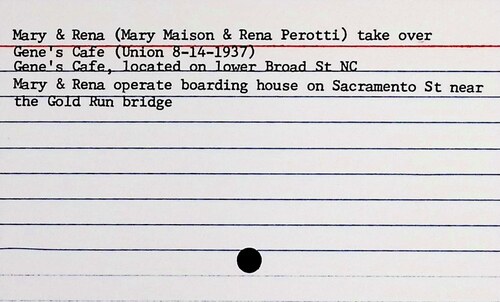 Mary & Rena (Mary Maison & Rena Perotti) take over
Gene's Cafe (Union 8-14-1937)
Gene's Cafe, located on lower Broad St NC
Mary & Rena operate boarding house on Sacramento St near
the Gold Run bridge